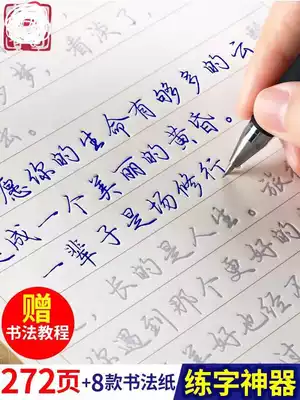 梦，看淡了，
云。
愿你的生命有够多的云
成一个美丽的黄昏。
一辈子是场修行
旅
，长的是人生。
你遇到那个更好的
美好也经
赠
书法教程
272页+8款书法纸
练字神器